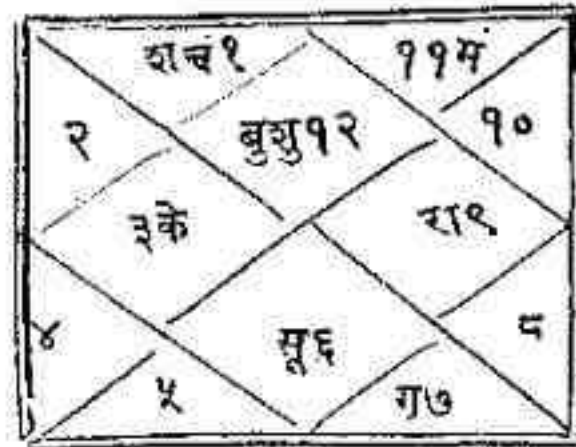 शचं१ ११म
२ बुशु१२ १०
३के रा९
४ सू६ ८
५ ग७